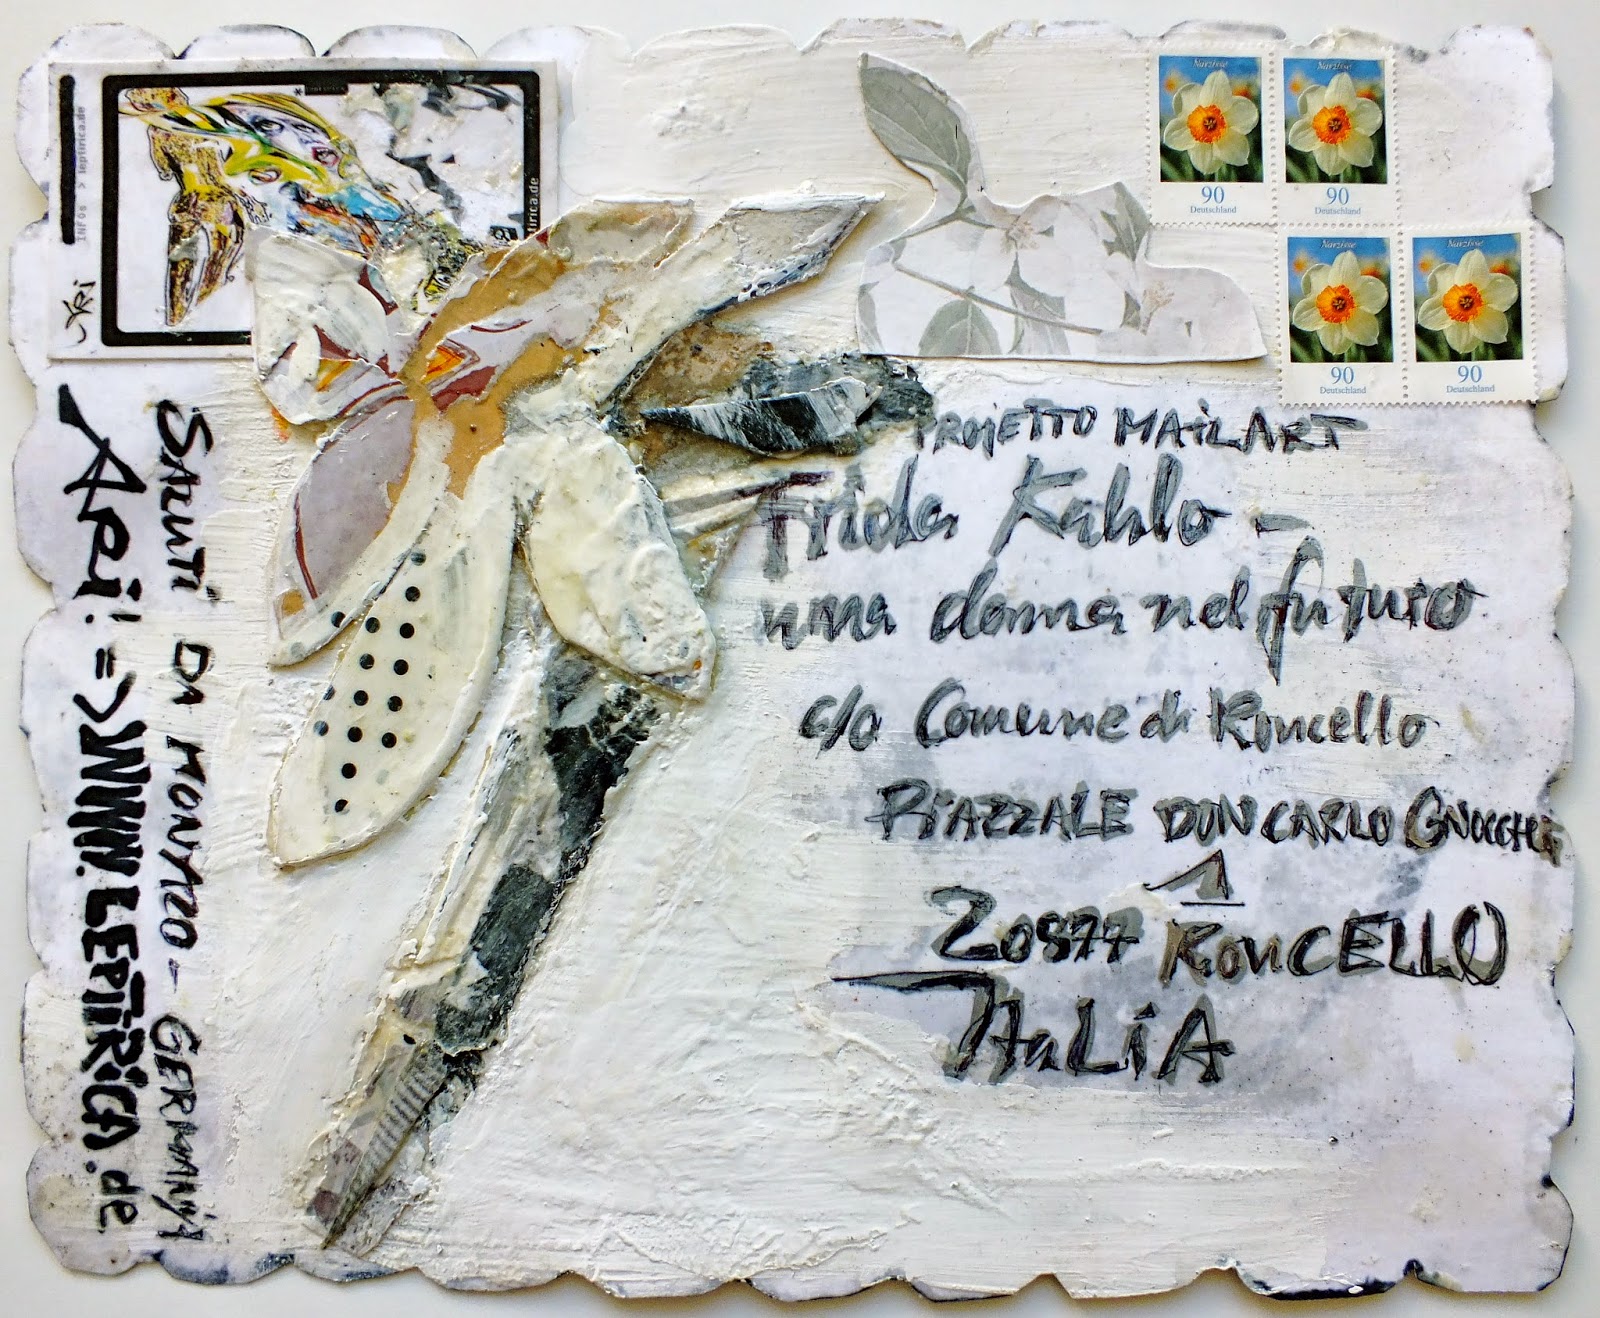 INFOs > leptirica.de
Narzisse
90
Deutschland
Narzisse
90
Deutschland
Narzisse
90
Deutschland
Narzisse
90
Deutschland
PROJETTO MAILART
Frida Kahlo -
una donna nel futuro
c/o Comune di Roncello
PIAZZALE DON CARLO GNOCCHI
1
20877 RONCELLO
ITaLiA
SALUTI DA MONACO - GERMANIA
Api! => WWW.LEPTIRICA.de